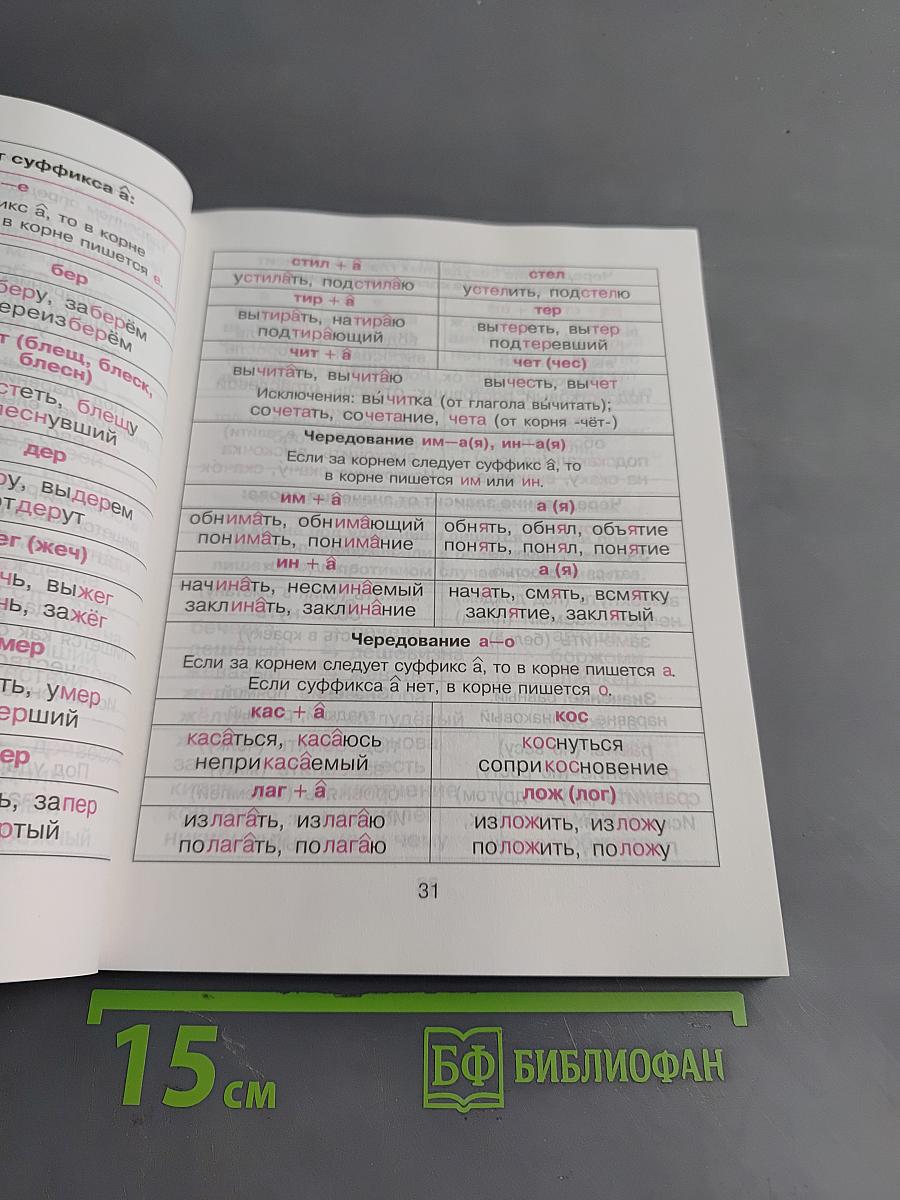 т суффикса а̂:
—е
икс а̂, то в корне
в корне пишется е.
бер
беру, заберём
переизберём
т (блещ, блеск,
блесн)
стеть, блещу
леснувший
дер
ру, выдерем
отдерут
ег (жеч)
чь, выжег
нь, зажёг
мер
ть, умер
ерший
ер
ь, запер
ртый
стил + а̂
стел
устила̂ть, подстила̂ю
устелить, подстелю
тир + а̂
тер
вытира̂ть, натира̂ю
подтира̂ющий
вытереть, вытер
подтеревший
чит + а̂
чет (чес)
вычита̂ть, вычита̂ю
вычесть, вычет
Исключения: вы́читка (от глагола вы́читать);
сочетать, сочетание, чета (от корня -чёт-)
Чередование им—а(я), ин—а(я)
Если за корнем следует суффикс а̂, то
в корне пишется им или ин.
им + а̂
а (я)
обнима̂ть, обнима̂ющий
понима̂ть, понима̂ние
обнять, обнял, объятие
понять, понял, понятие
ин + а̂
а (я)
начина̂ть, несмина̂емый
заклина̂ть, заклина̂ние
начать, смять, всмятку
заклятие, заклятый
Чередование а—о
Если за корнем следует суффикс а̂, то в корне пишется а.
Если суффикса а̂ нет, в корне пишется о.
кас + а̂
кос
каса̂ться, каса̂юсь
неприкаса̂емый
коснуться
соприкосновение
лаг + а̂
лож (лог)
излага̂ть, излага̂ю
полага̂ть, полага̂ю
изложить, изложу
положить, положу
31
15 см
БФ БИБЛИОФАН